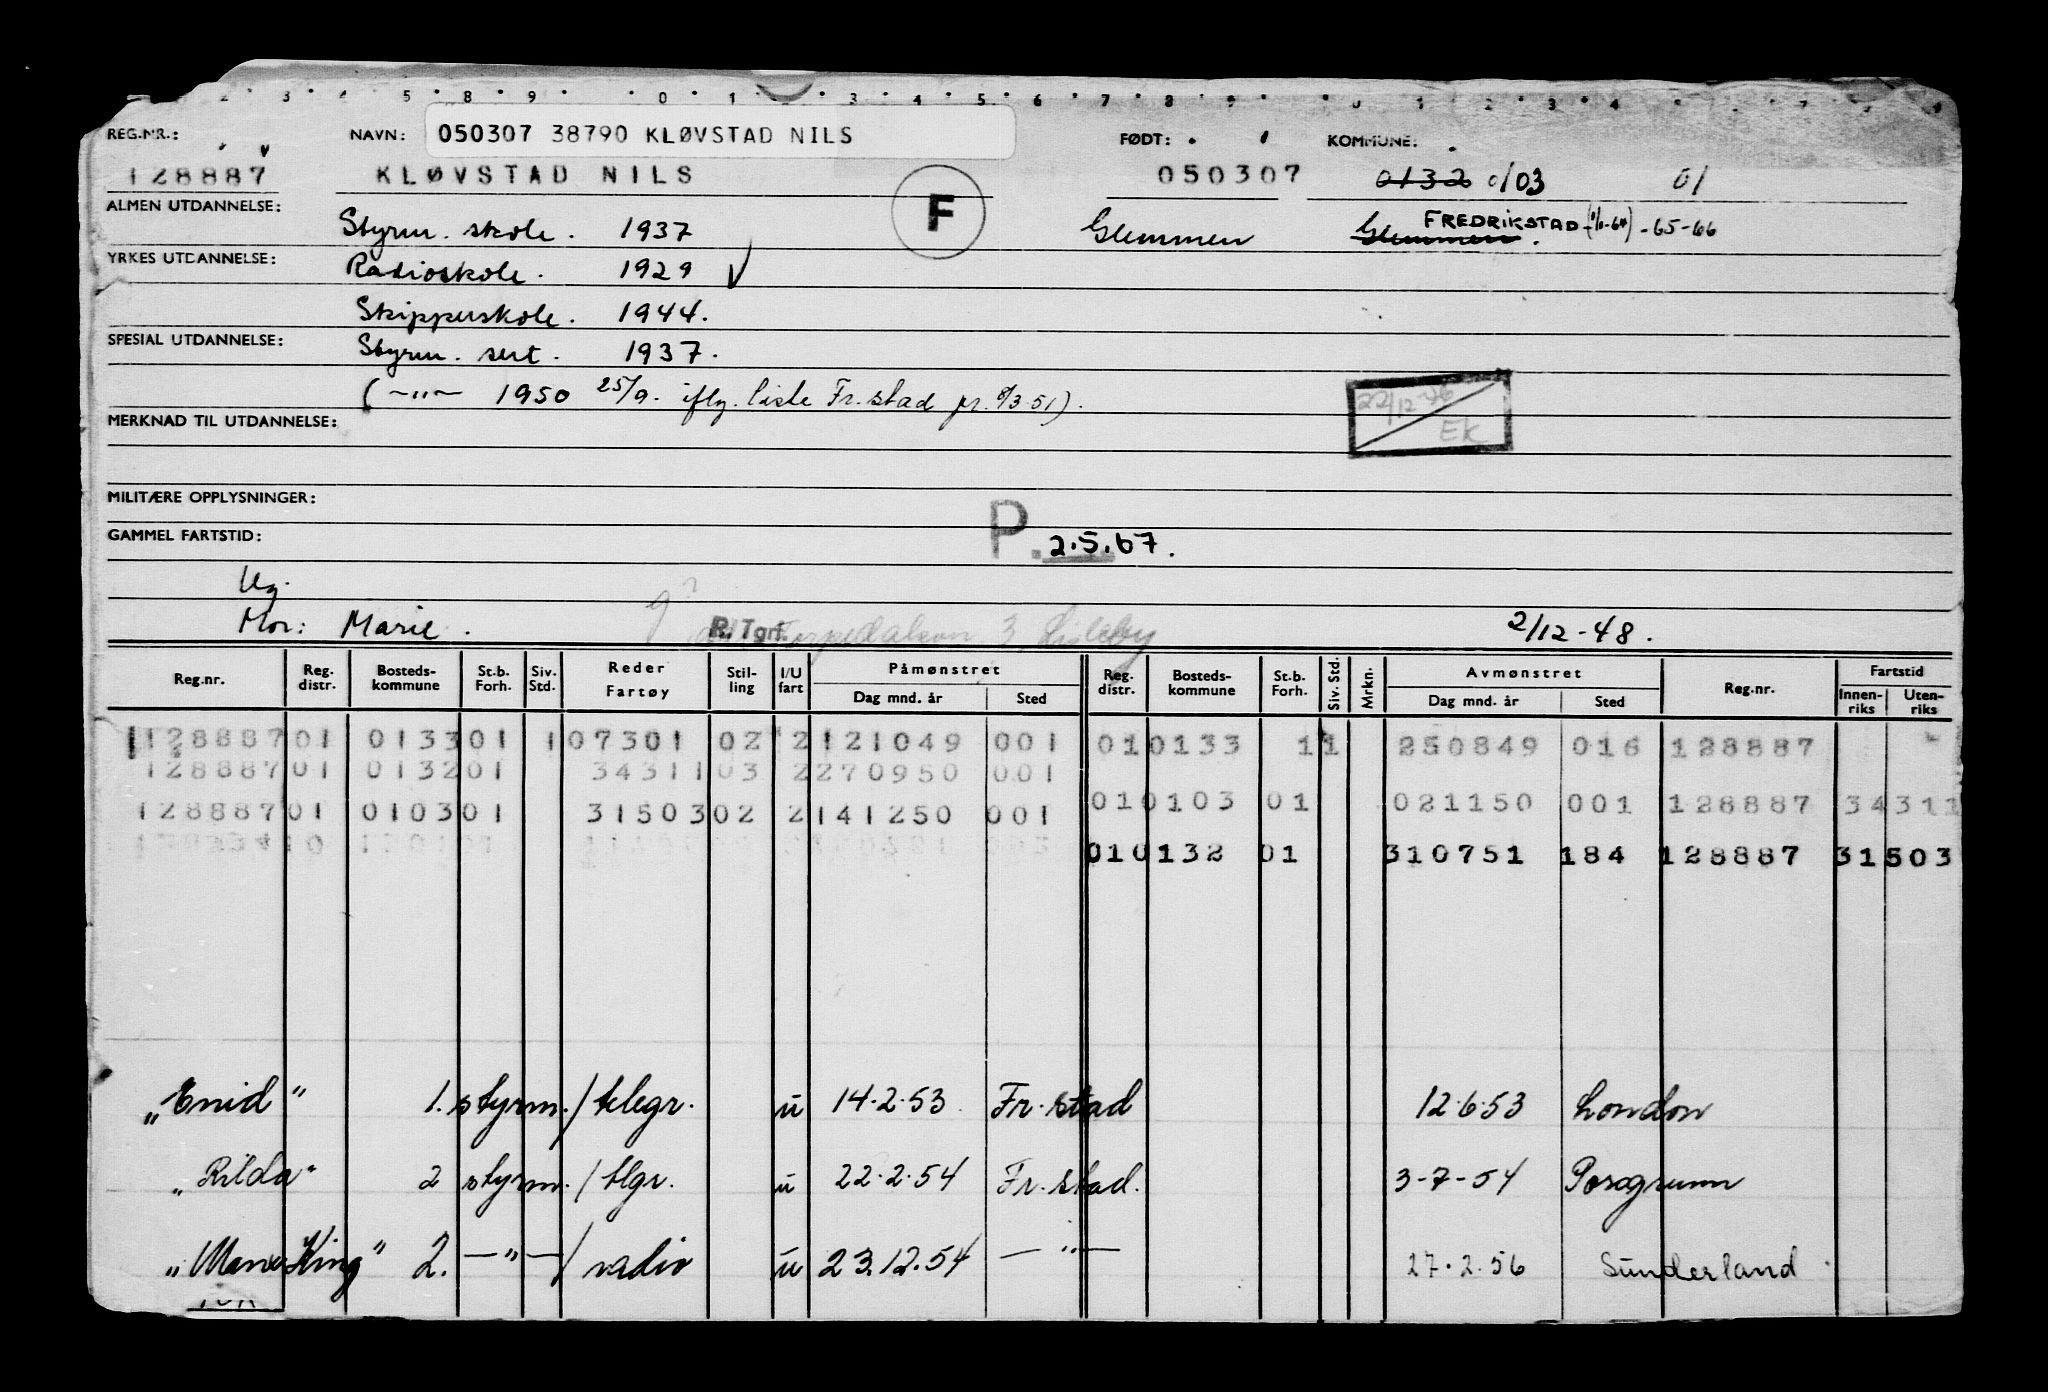 REG.NR.: NAVN: 050307 38790 KLØVSTAD NILS FØDT: KOMMUNE:
128887 KLØVSTAD NILS F 050307 0132 0103 01
ALMEN UTDANNELSE: Styrm. skole. 1937 Glemmen Glemmen. FREDRIKSTAD -65-66
YRKES UTDANNELSE: Radioskole. 1929
Skipperskole. 1944.
SPESIAL UTDANNELSE: Styrm. sert. 1937.
(—"— 1950 25/9. iflg. liste Fr.stad pr. 8/3 51).
22/12-76
EK
MERKNAD TIL UTDANNELSE:
MILITÆRE OPPLYSNINGER:
GAMMEL FARTSTID: P. 2.5.67.
Ug.
Mor: Marie. R. Tgrf. 3 Lisleby 2/12-48.
Reg.nr. Reg. distr. Bosteds-kommune St.b. Forh. Siv. Std. Reder Fartøy Stil-ling I/U fart Påmønstret Dag mnd. år Sted Reg. distr. Bosteds-kommune St.b. Forh. Siv. Std. Mrkn. Avmønstret Dag mnd. år Sted Reg.nr. Fartstid Innen-riks Uten-riks
128887 01 0133 01 1 07301 02 2 121049 001 01 0133 1 1 250849 016 128887
128887 01 0132 01 34311 03 2 270950 001
01 0103 01 021150 001 128887 34311
128887 01 0103 01 31503 02 2 141250 001
01 0132 01 310751 184 128887 31503
"Enid" 1. styrm./telegr. u 14.2.53 Fr.stad 12.6.53 London
"Rilda" 2 styrm./tlgr. u 22.2.54 Fr.stad. 3-7-54 Porsgrunn
King" 2. —"—/radio u 23.12.54 —"— 27.2.56 Sunderland